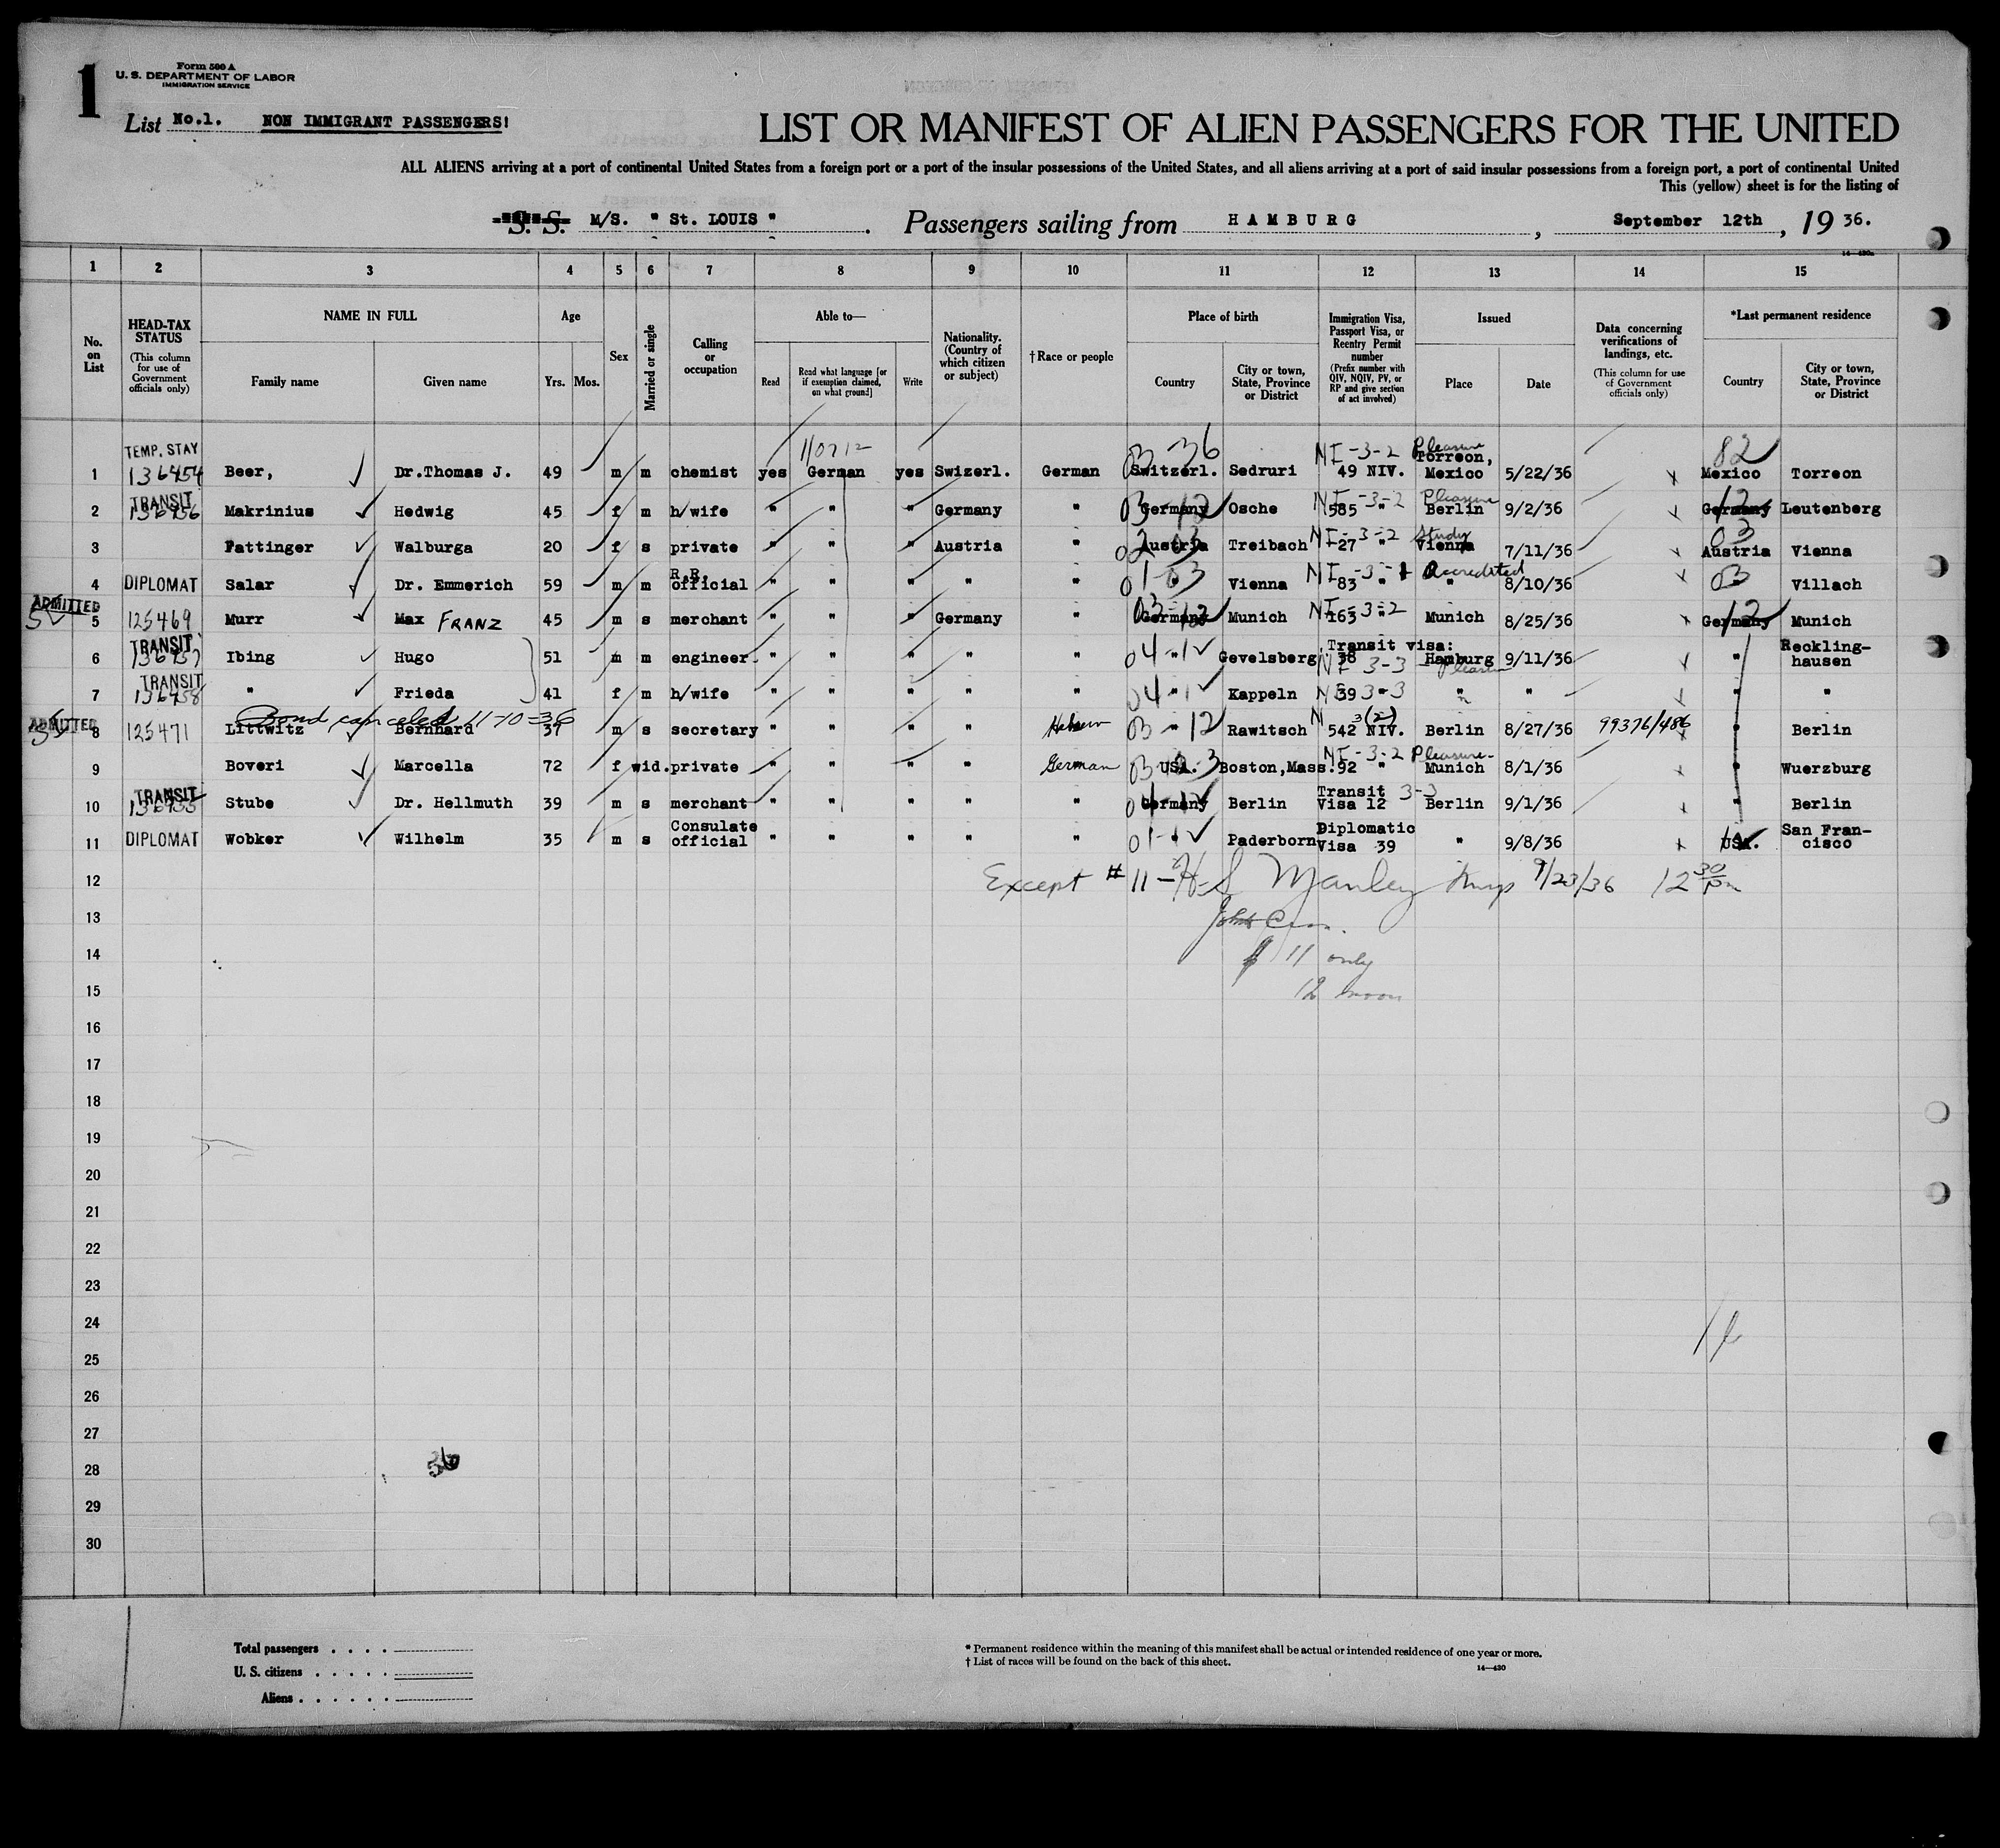 1
Form 500 A
U. S. DEPARTMENT OF LABOR
IMMIGRATION SERVICE
List No.1. NON IMMIGRANT PASSENGERS!
LIST OR MANIFEST OF ALIEN PASSENGERS FOR THE UNITED
ALL ALIENS arriving at a port of continental United States from a foreign port or a port of the insular possessions of the United States, and all aliens arriving at a port of said insular possessions from a foreign port, a port of continental United
This (yellow) sheet is for the listing of
S. S. M/S. " St. LOUIS " . Passengers sailing from HAMBURG , September 12th , 19 36.
1 2 3 4 5 6 7 8 9 10 11 12 13 14 15
No. on List
HEAD-TAX STATUS (This column for use of Government officials only)
NAME IN FULL
Family name Given name
Age
Yrs. Mos.
Sex
Married or single
Calling or occupation
Able to—
Read Read what language [or if exemption claimed, on what ground] Write
Nationality. (Country of which citizen or subject)
†Race or people
Place of birth
Country City or town, State, Province or District
Immigration Visa, Passport Visa, or Reentry Permit number (Prefix number with QIV, NQIV, PV, or RP and give section of act involved)
Issued
Place Date
Data concerning verifications of landings, etc. (This column for use of Government officials only)
*Last permanent residence
Country City or town, State, Province or District
TEMP. STAY 110712 03 36 NI-3-2 Pleasure 82
1 136454 Beer, Dr.Thomas J. 49 m m chemist yes German yes Swizerl. German Switzerl. Sedruri 49 NIV. Torreon, Mexico 5/22/36 Mexico Torreon
TRANSIT
2 136456 Makrinius Hedwig 45 f m h/wife " " " Germany " Germany Osche 585 " Berlin 9/2/36 Germany Leutenberg
NI-3-2 Pleasure 12
3 Pattinger Walburga 20 f s private " " " Austria " Austria Treibach 27 " Vienna 7/11/36 Austria Vienna
NI-3-2 Study 03
4 DIPLOMAT Salar Dr. Emmerich 59 m m R.R. official " " " " " 01-03 Vienna 83 " " 8/10/36 03 Villach
NI-3-1 Accredited
ADMITTED
5 125469 Murr Max FRANZ 45 m s merchant " " " Germany " Germany Munich 163 " Munich 8/25/36 Germany Munich
NI-3-2 12
TRANSIT
6 136457 Ibing Hugo 51 m m engineer " " " " " 04-12 " Gevelsberg Transit visa: 38 Hamburg 9/11/36 " Recklinghausen
NI 3-3 Pleasure
TRANSIT
7 136458 " Frieda 41 f m h/wife " " " " " 04-12 " Kappeln 39 " " " " "
Bond canceled 11-10-36
ADMITTED
8 125471 Littwitz Bernhard 37 m s secretary " " " " Hebrew 03 " 12 Rawitsch 542 NIV. 3(2) Berlin 8/27/36 99376/486 " Berlin
9 Boveri Marcella 72 f wid. private " " " " German USA. Boston,Mass. 92 " Munich 8/1/36 " Wuerzburg
NI-3-2 Pleasure
TRANSIT
10 136455 Stube Dr. Hellmuth 39 m s merchant " " " " " Germany Berlin Transit Visa 12 3-3 Berlin 9/1/36 " Berlin
11 DIPLOMAT Wobker Wilhelm 35 m s Consulate official " " " " " 01-12 " Paderborn Diplomatic Visa 39 " 9/8/36 USA. San Francisco
12 Except #11 - H S Manley Insp 9/23/36 12 30 pm
13
14 # 11 only
15 12 noon
16
17
18
19
20
21
22
23
24
25
26
27
28 36
29
30
Total passengers . . . .
U. S. citizens . . . . .
Aliens . . . . . .
* Permanent residence within the meaning of this manifest shall be actual or intended residence of one year or more.
† List of races will be found on the back of this sheet.
14—430